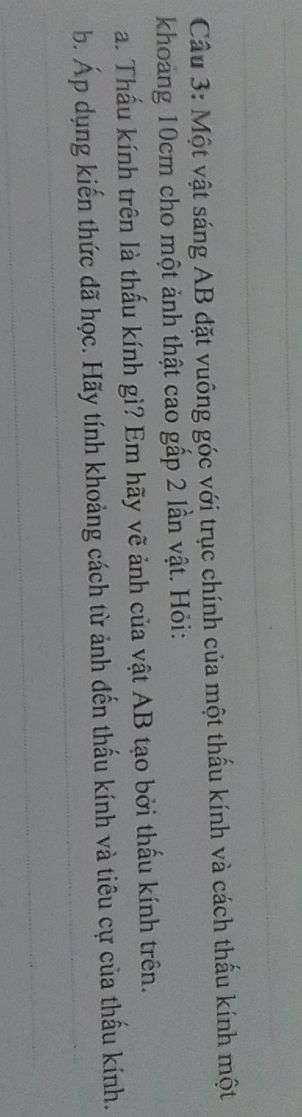 Câu 3: Một vật sáng AB đặt vuông góc với trục chính của một thấu kính và cách thấu kính một
khoảng 10cm cho một ảnh thật cao gấp 2 lần vật. Hỏi:
a. Thấu kính trên là thấu kính gì? Em hãy vẽ ảnh của vật AB tạo bởi thấu kính trên.
b. Áp dụng kiến thức đã học. Hãy tính khoảng cách từ ảnh đến thấu kính và tiêu cự của thấu kính.